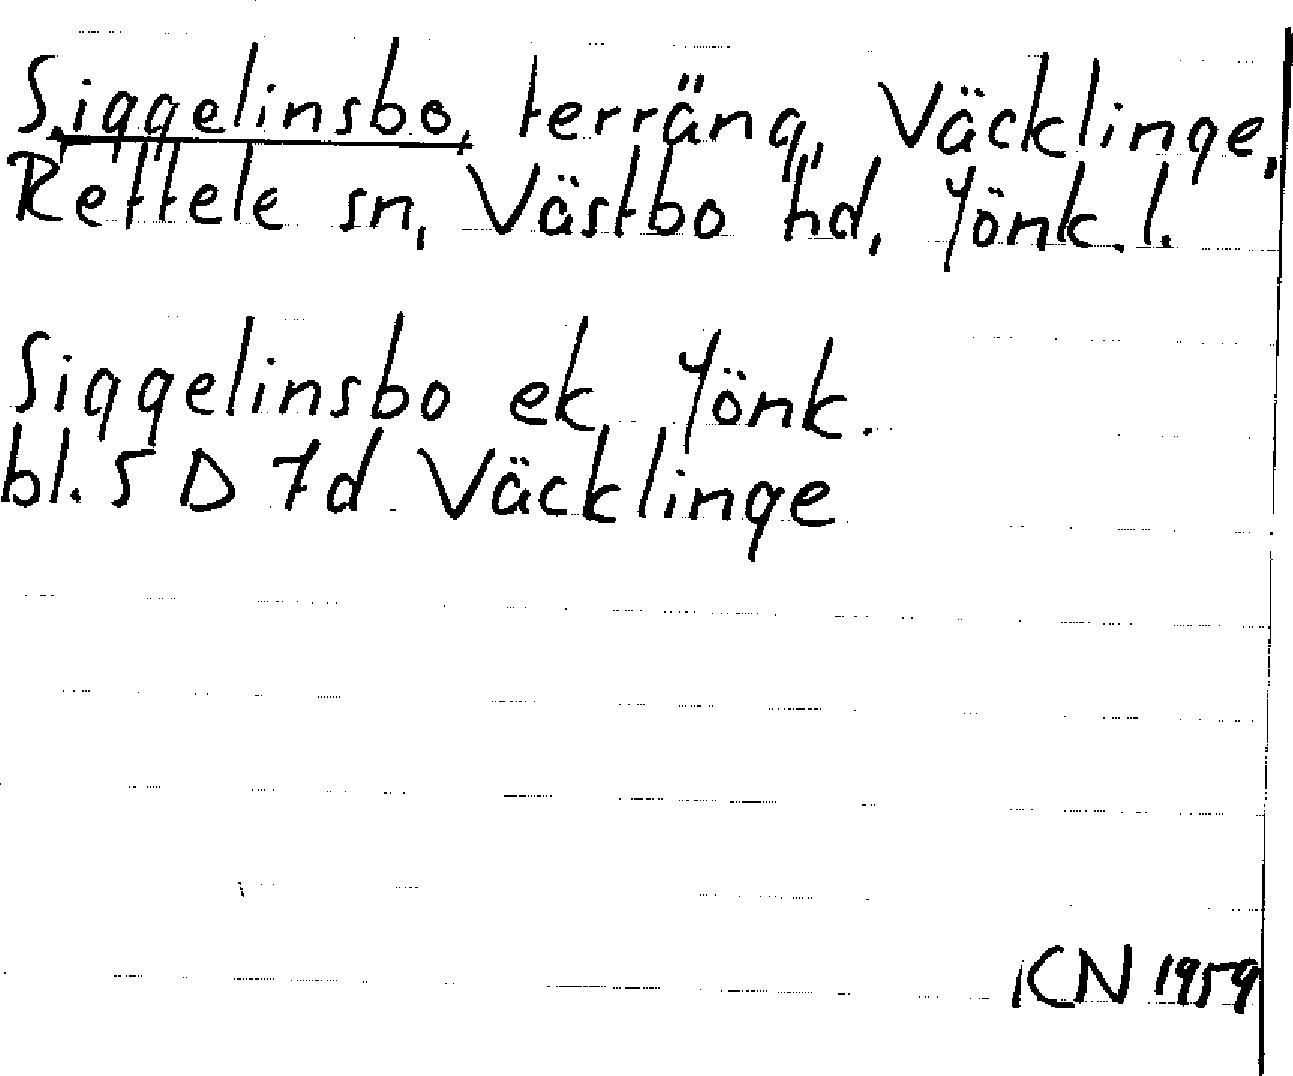 Siggelinsbo, terräng, Väcklinge,
Reftele sn, Västbo hd, Jönk.l.
Siggelinsbo ek Jönk.
bl. 5 D 7d Väcklinge
KN 1959